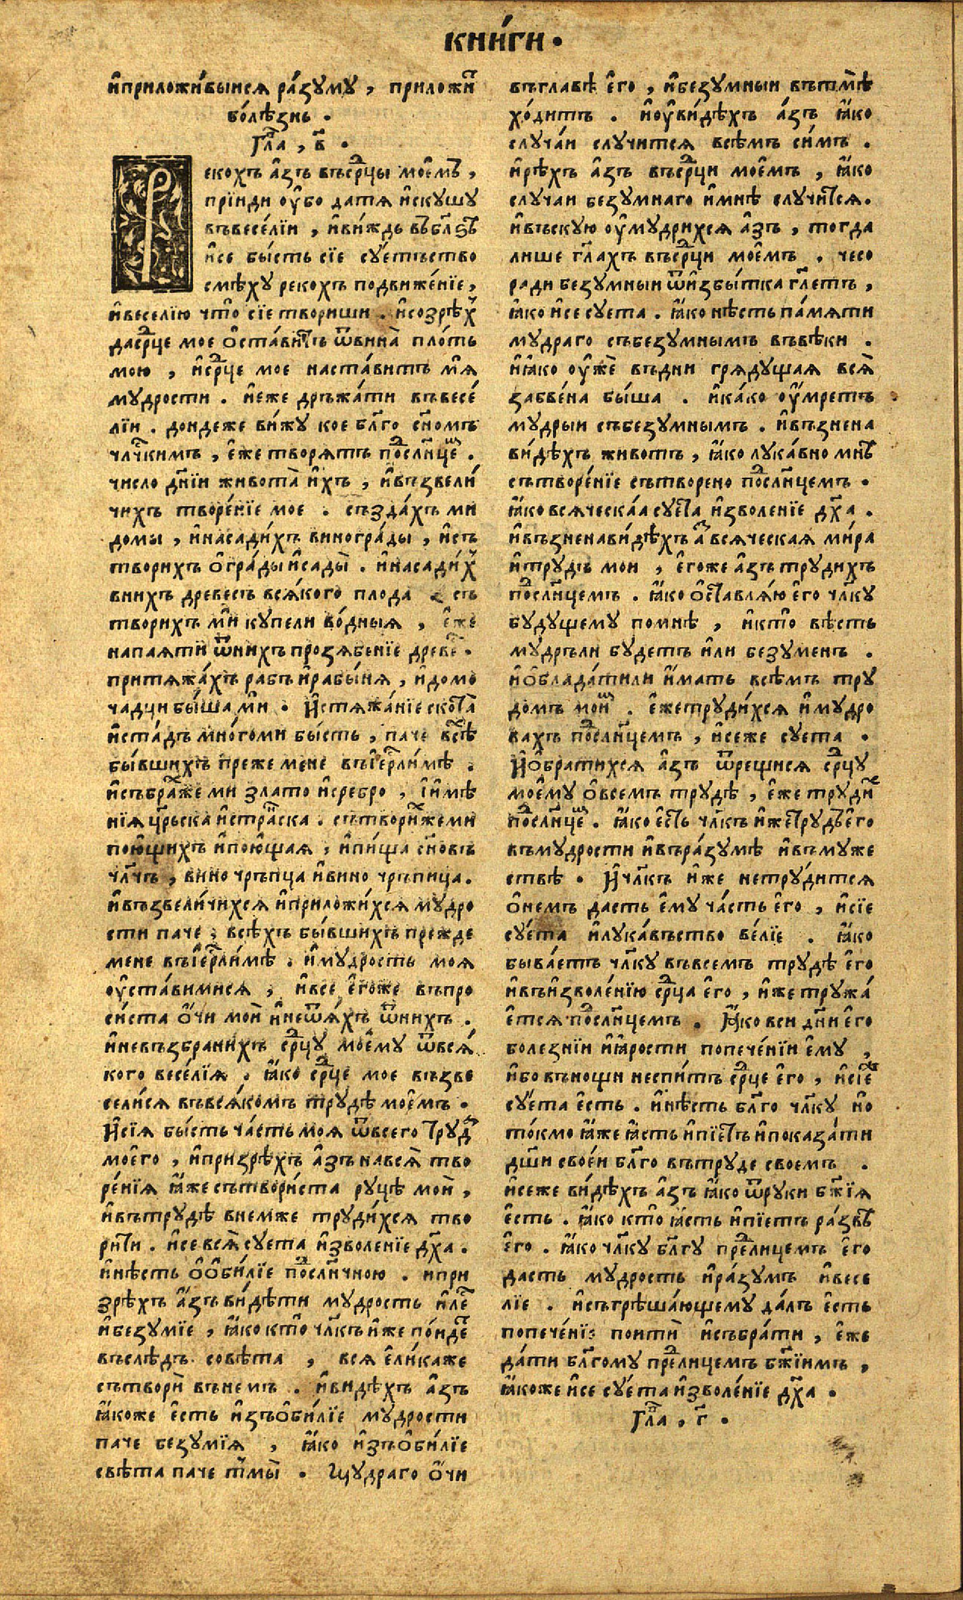 кни́ги ·
и҆приложи́выися ра́зуму , приложи́т
бо́лѣзнь .
Гла , в҃ .
Рекохъ а҆зъ въсрⷣцы мое҆мъ ,
прїиди оу҆бо датя и҆скушу
въвесе́лїи , и҆ви́ждь въбл҃гъ
и҆се бы́сть сїе суе́тьство
смѣ́ху рекохъ подвиже́нїе ,
и҆веселїю что сїе твориши . и҆созрѣ́хъ
дасрⷣце мое ѻ҆ста́витъ ѿвина̀ пло́ть
мою , и҆срⷣце мое наста́витъ мѧ̀
мудрости . и҆еже дръжа́ти въвесе́
лїи . дондеже ви́жу кое бл҃го сн҃омъ
чл҃чкимъ , е҆же творятъ пⷪслн҃цеⷨ .
число дн҃їи живота̀ и҆хъ , и҆възвели́
чихъ творе́нїе мое . създа́хъ ми
домы , и҆насади́хъ виногра́ды , и҆съ
творихъ ѻ҆гра́ды и҆сады̀ . и҆насади́хъ
внихъ древесъ вся́кого плода съ
творихъ ми купели во́дныя , е҆же
напаяти ѿнихъ прозябенїе древеⷨ .
притяжа́хъ рабъ и҆рабы́ня , и҆домо
чадци бы́ша ми . И҆стяжа́нїе скота̀
и҆ста́дъ мно́гоми бысть , паче всѣⷯ
бы́вшихъ преже мене въі҆ерⷭ҇лимѣ .
и҆събра́хже ми злато и҆сребро , и҆и҆мѣ
нїя цр҃ьска и҆стра́нска . сътвори́хжеми
пою́щихъ и҆пою́щая , и҆пи́ща сн҃овъ
чл҃чь , вино чръпца и҆вино чръпица .
и҆възвели́чихся и҆приложи́хся мудро
сти паче , всѣ́хъ бы́вшихъ прежде
мене въі҆ерⷭ҇лимѣ . и҆мудрость моя
оу҆ставимися , и҆все е҆гоже въпро
си́ста ѻ҆́чи мои̑ и҆неѿя́хъ ѿнихъ .
и҆невъзбрани́хъ срⷣцу мое҆му ѿвся́
кого весе́лїя . ꙗ҆ко срⷣце мое възве
сели́ся въвся́комъ трудѣ мое҆мъ .
И҆сїя бы́сть ча́сть моя ѿвсего труда̀
мое҆го , и҆призрѣ́хъ а҆зъ нався̀ тво
ре́нїя ꙗ҆же сътвори́ста руцѣ мои̑ ,
и҆въ трудѣ внемже труди́хся тво
ри́ти . и҆се вся̀ суета и҆зволенїе дх҃а .
и҆нѣсть ѻ҆ѻ҆би́лїе пⷪслн҃чною . и҆при
зрѣ́хъ а҆́зъ ви́дѣти мудрость и҆леⷭ҇
и҆безу́мїе , ꙗ҆ко кто чл҃къ и҆же по́идеⷮ
въслѣдъ совѣ́та , вся е҆ли́каже
сътвори̑ въне́мъ . и҆видѣхъ а҆зъ
ꙗ҆коже е҆сть и҆зъѻ҆би́лїе мудрости
паче безу́мїя , ꙗ҆ко и҆зъѻ҆би́лїе
свѣ́та паче тмы̀ . Мудраго ѻ҆́чи
въглавѣ̀ е҆го , и҆безумныи въ тмѣ̀
хо́дитъ . и҆оу҆ви́дѣхъ а́зъ ꙗ҆ко
случа́и случится всѣ́мъ си́мъ .
и҆рѣхъ а҆зъ въсрⷣци мое҆мъ , ꙗ҆ко
случаи безумнаго и҆мнѣ случи́тся .
и҆въскую оу҆мудрихся а҆зъ , тогда
лише гл҃ахъ въсрⷣци мое҆мъ . чесо
ради безумныи ѿи҆збы́тка гл҃етъ ,
ꙗ҆ко и҆се суета . ꙗ҆ко нѣсть па́мяти
мудраго събезумнымъ въвѣки .
и҆ꙗ҆ко оу҆же́ въдни гряду́щая вся̀
забве́на бы́ша . и҆ка́ко оу҆мретъ
мудрыи събезумнымъ . и҆възнена
ви́дѣхъ животъ , ꙗ҆ко лука́вно ми
сътворе́нїе сътворено пⷪслн҃цемъ .
ꙗ҆ко вся́ческаа суета и҆зволенїе дх҃а .
и҆възненави́дѣхъ а҆зъ вся́ческая ми́ра
и҆трудъ мои , е҆гоже а҆зъ трудихъ
пⷪслн҃цемъ . ꙗ҆ко ѻ҆ставля́ю е҆го чл҃ку
будущему помнѣ , и҆кто вѣсть
му́дръли будетъ и҆ли безуменъ .
и҆ѻ҆блада́тили и҆́мать всѣмъ тру
домъ мои҆мъ . е҆жетруди́хся и҆мудро
вахъ пⷪслн҃цемъ , и҆сеже суета .
И҆ѻ҆братихся а҆зъ ѿрещися срⷣцу
мое́му ѻ҆всемъ трудѣ̀ , е҆же трудиⷯ
пⷪслн҃цеⷨ . ꙗ҆ко е҆сть чл҃къ и҆жетрудъ е҆го
въмудрости и҆въра́зумѣ и҆въмуже
ствѣ̀ . И҆чл҃къ и҆же нетрудится
ѻ҆немъ дасть е҆му ча́сть е҆го , и҆сїе
суе́та и҆лука́въство ве́лїе . ꙗ҆ко
быва́етъ чл҃ку въвсемъ трудѣ̀ е҆го
и҆въи҆зволе́нїю срⷣца е҆го , и҆же тружа́
е҆тся пⷪслн҃цемъ . Ꙗ҆ко вси дн҃и е҆го
болезнїи и҆ꙗ҆рости попече́нїи е҆му ,
и҆бо вънощи неспитъ срⷣце е҆го , и҆сїе
суета е҆сть . и҆нѣсть бл҃го чл҃ку но
то́кмо ꙗ҆же ꙗ҆сть и҆пїетъ и҆показа́ти
дш҃и свое́и бл҃го вътруде своемъ .
и҆сеже ви́дѣхъ а҆зъ ꙗ҆ко ѿруки бж҃їя
е҆сть . ꙗ҆ко кто ꙗ҆сть и҆пїетъ ра́звѣ
е҆го . ꙗ҆ко чл҃ку бл҃гу преⷣлицемъ е҆го
дасть мудрость и҆ра́зумъ и҆весе
лїе . и҆съгрѣша́ющему да́лъ е҆сть
попече́нїе поити и҆събра́ти , е҆же
да́ти бл҃гому преⷣлицемъ бж҃їимъ ,
ꙗ҆коже и҆се суета и҆зволе́нїе дх҃а .
Гла , г҃ .